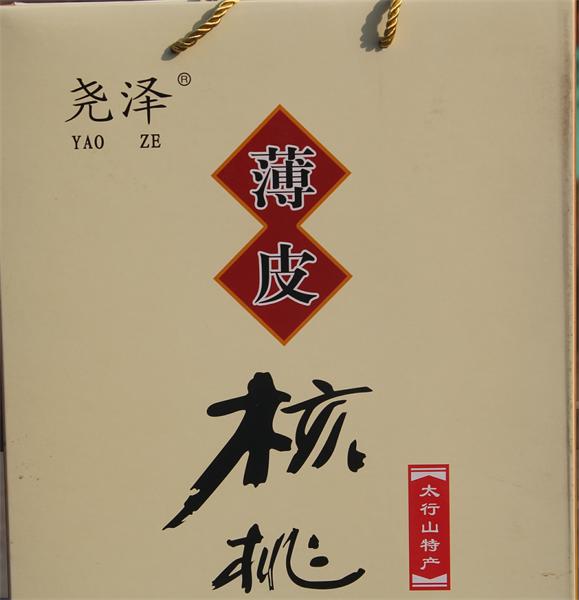 尧泽®
YAO ZE
薄
皮
核
桃
太行山特产